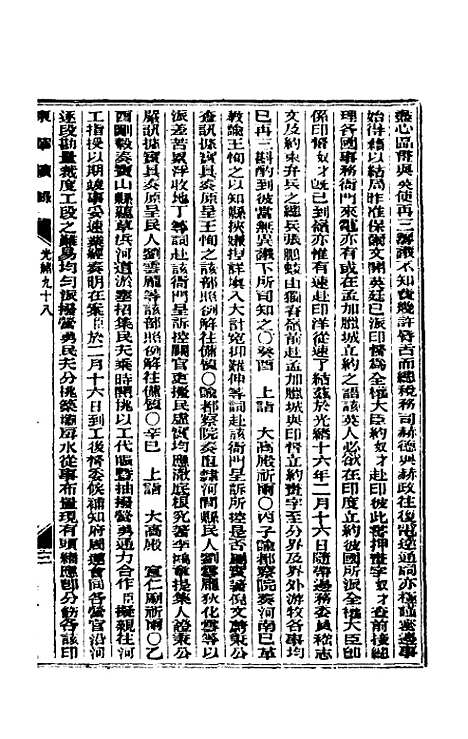 盡心區畫與英使再三講議不知後幾許脣舌而總稅務司赫德與赫政往復電達通詞亦極謹密邊事
始得藉以結局昨准保爾文開英廷已派印督爲全權大臣約奴才赴印彼此書押畫字奴才查前接總
理各國事務衙門來電亦有或在孟加臘城立約之語該英人必欲在印度立約彼國所派全權大臣卽
係印督奴才旣已到彼嶺亦惟有速赴印洋從速了結茲於光緖十六年二月十六日隨帶邊務委員嵇志
文及約束弁兵之總兵張騰蛟由獨脊嶺前赴孟加臘城與印督立約畫字至分界及界外游牧各事均
已再三斟酌到彼當無異議下所司知之○癸酉　上詣　大高殿祈雨○丙子諭都察院奏河南已革
教諭王恂之以知縣挾嫌捏詳塡入大計寃抑難伸等詞赴該衙門呈訴所控是否屬實著倪文蔚秉公
查訊原呈王恂之該部照例解往備質○諭都察院奏直隸河間縣民人劉雲龐狄化雲等以
派差苦累浮收地丁等詞赴該衙門呈訴所控官吏擾民虛實均應澈底根究著李鴻章提集人證秉公
嚴訊據實具奏原呈民人劉雲龐等該部照例解往備質○辛巳　上詣　大高殿　宣仁廟祈雨○乙
酉剛毅奏寶山縣蘊草浜河道淤塞招集民夫乘時開挑以工代賑暨抽撥營勇通力合作臣擬親往河
工指授以期竣事妥速業經奏明在案臣於二月十六日到工後督委候補知府周蓮會同各營官沿河
逐段勘量裁度工段之難易均勻派撥營勇民夫分挑築壩戽水從事布置現有頭緖應卽分飭各該印
東華續錄　光緖九十八